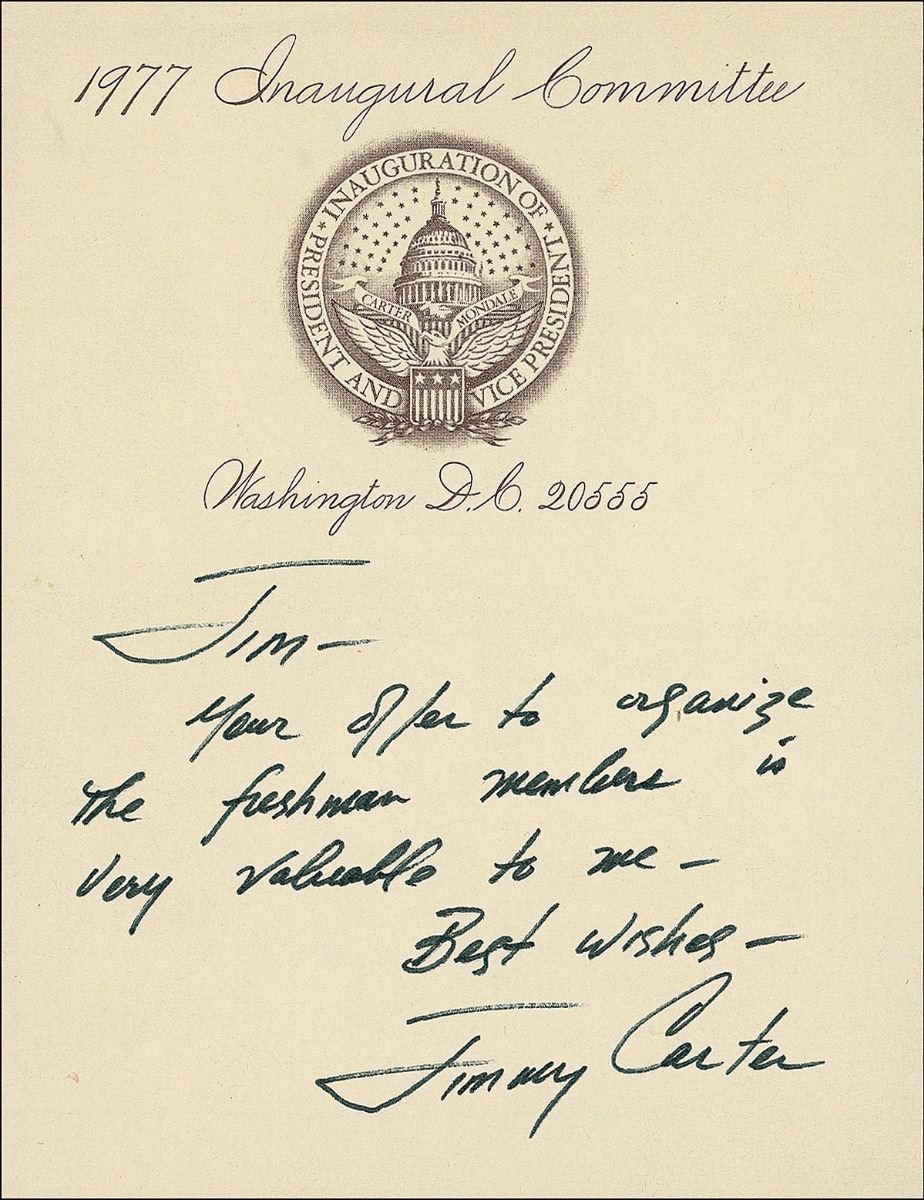 1977 Inaugural Committee
PRESIDENT AND VICE PRESIDENT · INAUGURATION OF ·
CARTER MONDALE
Washington D.C. 20555
Jim—
Your offer to organize
the freshman members is
very valuable to me—
Best wishes—
Jimmy Carter